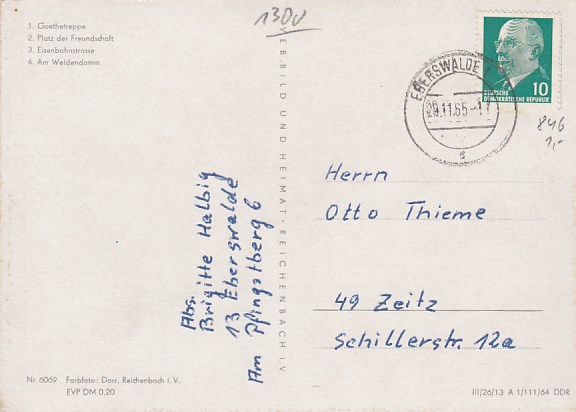 1. Goethetreppe
2. Platz der Freundschaft
3. Eisenbahnstrasse
4. Am Weidendamm
130V
VEB BILD UND HEIMAT · REICHENBACH I.V
EBERSWALDE
29.11.65
e
DEUTSCHE
DEMOKRATISCHE REPUBLIK
10
846
1,-
Abs.
Brigitte Halbig
13 Eberswalde
Am Pfingstberg 6
Herrn
Otto Thieme
49 Zeitz
Schillerstr. 12a
Nr. 6069 Farbfoto: Darr, Reichenbach i. V.
EVP DM 0,20
III/26/13 A 1/111/64 DDR